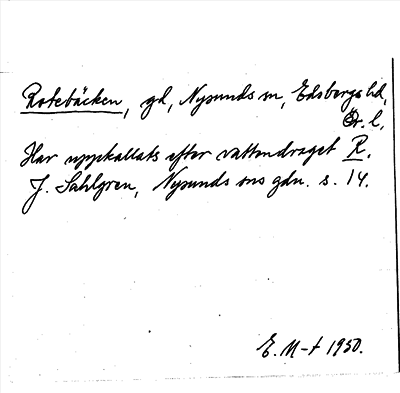 Rotebäcken, gd, Nysunds sn, Edsbergs hd,
Ör. l.
Har uppkallats efter vattendraget R.
J. Sahlgren, Nysunds sns gdn. s. 14.
E. M-t 1950.